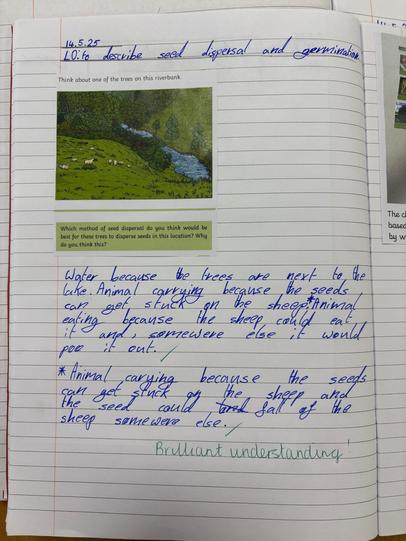 14.5.25
LO: to describe seed dispersal and germination
Think about one of the trees on this riverbank.
Which method of seed dispersal do you think would be
best for these trees to disperse seeds in this location? Why
do you think this?
Water because the trees are next to the
lake. Animal carrying because the seeds
can get stuck on the sheep.* Animal
eating because the sheep could eat
it and, somewere else it would
poo it out.
* Animal carying because the seeds
can get stuck on the sheep and
the seed could fal of the
sheep somewere else.
Brilliant understanding!
The ch
based
by w